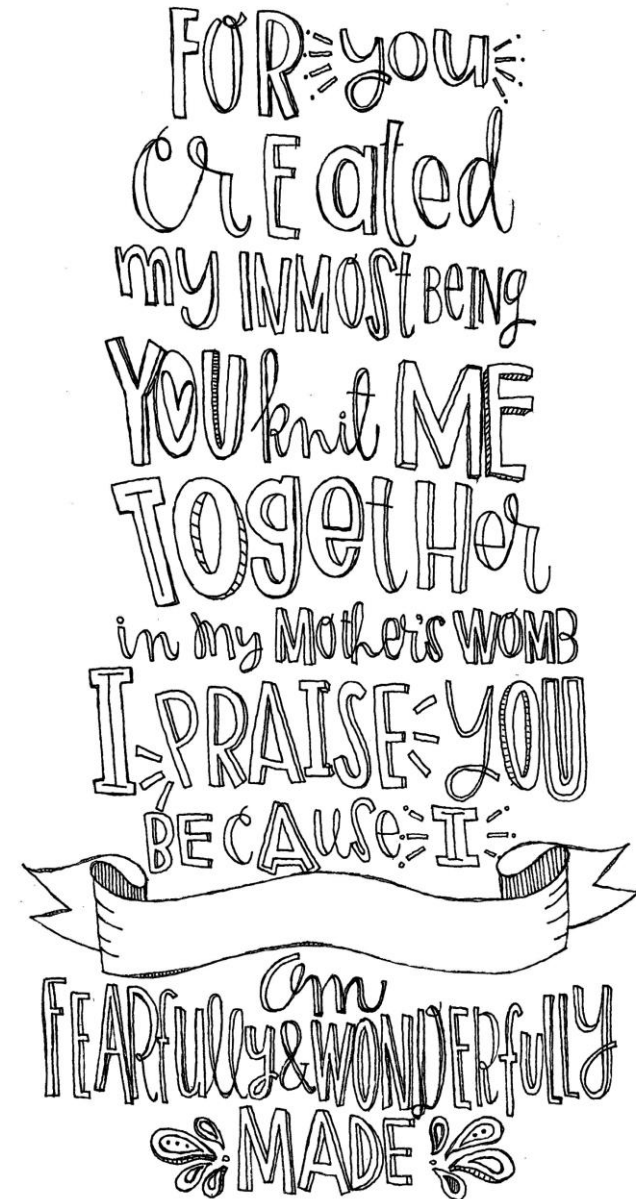 FOR you
crEated
my INMOSt BeINg
YOU knit ME
TOgetHer
in my Mother's WOMB
I PRAISE YOU
BECAuse I
am
FEARfully & WONDERfuLLy
MADE